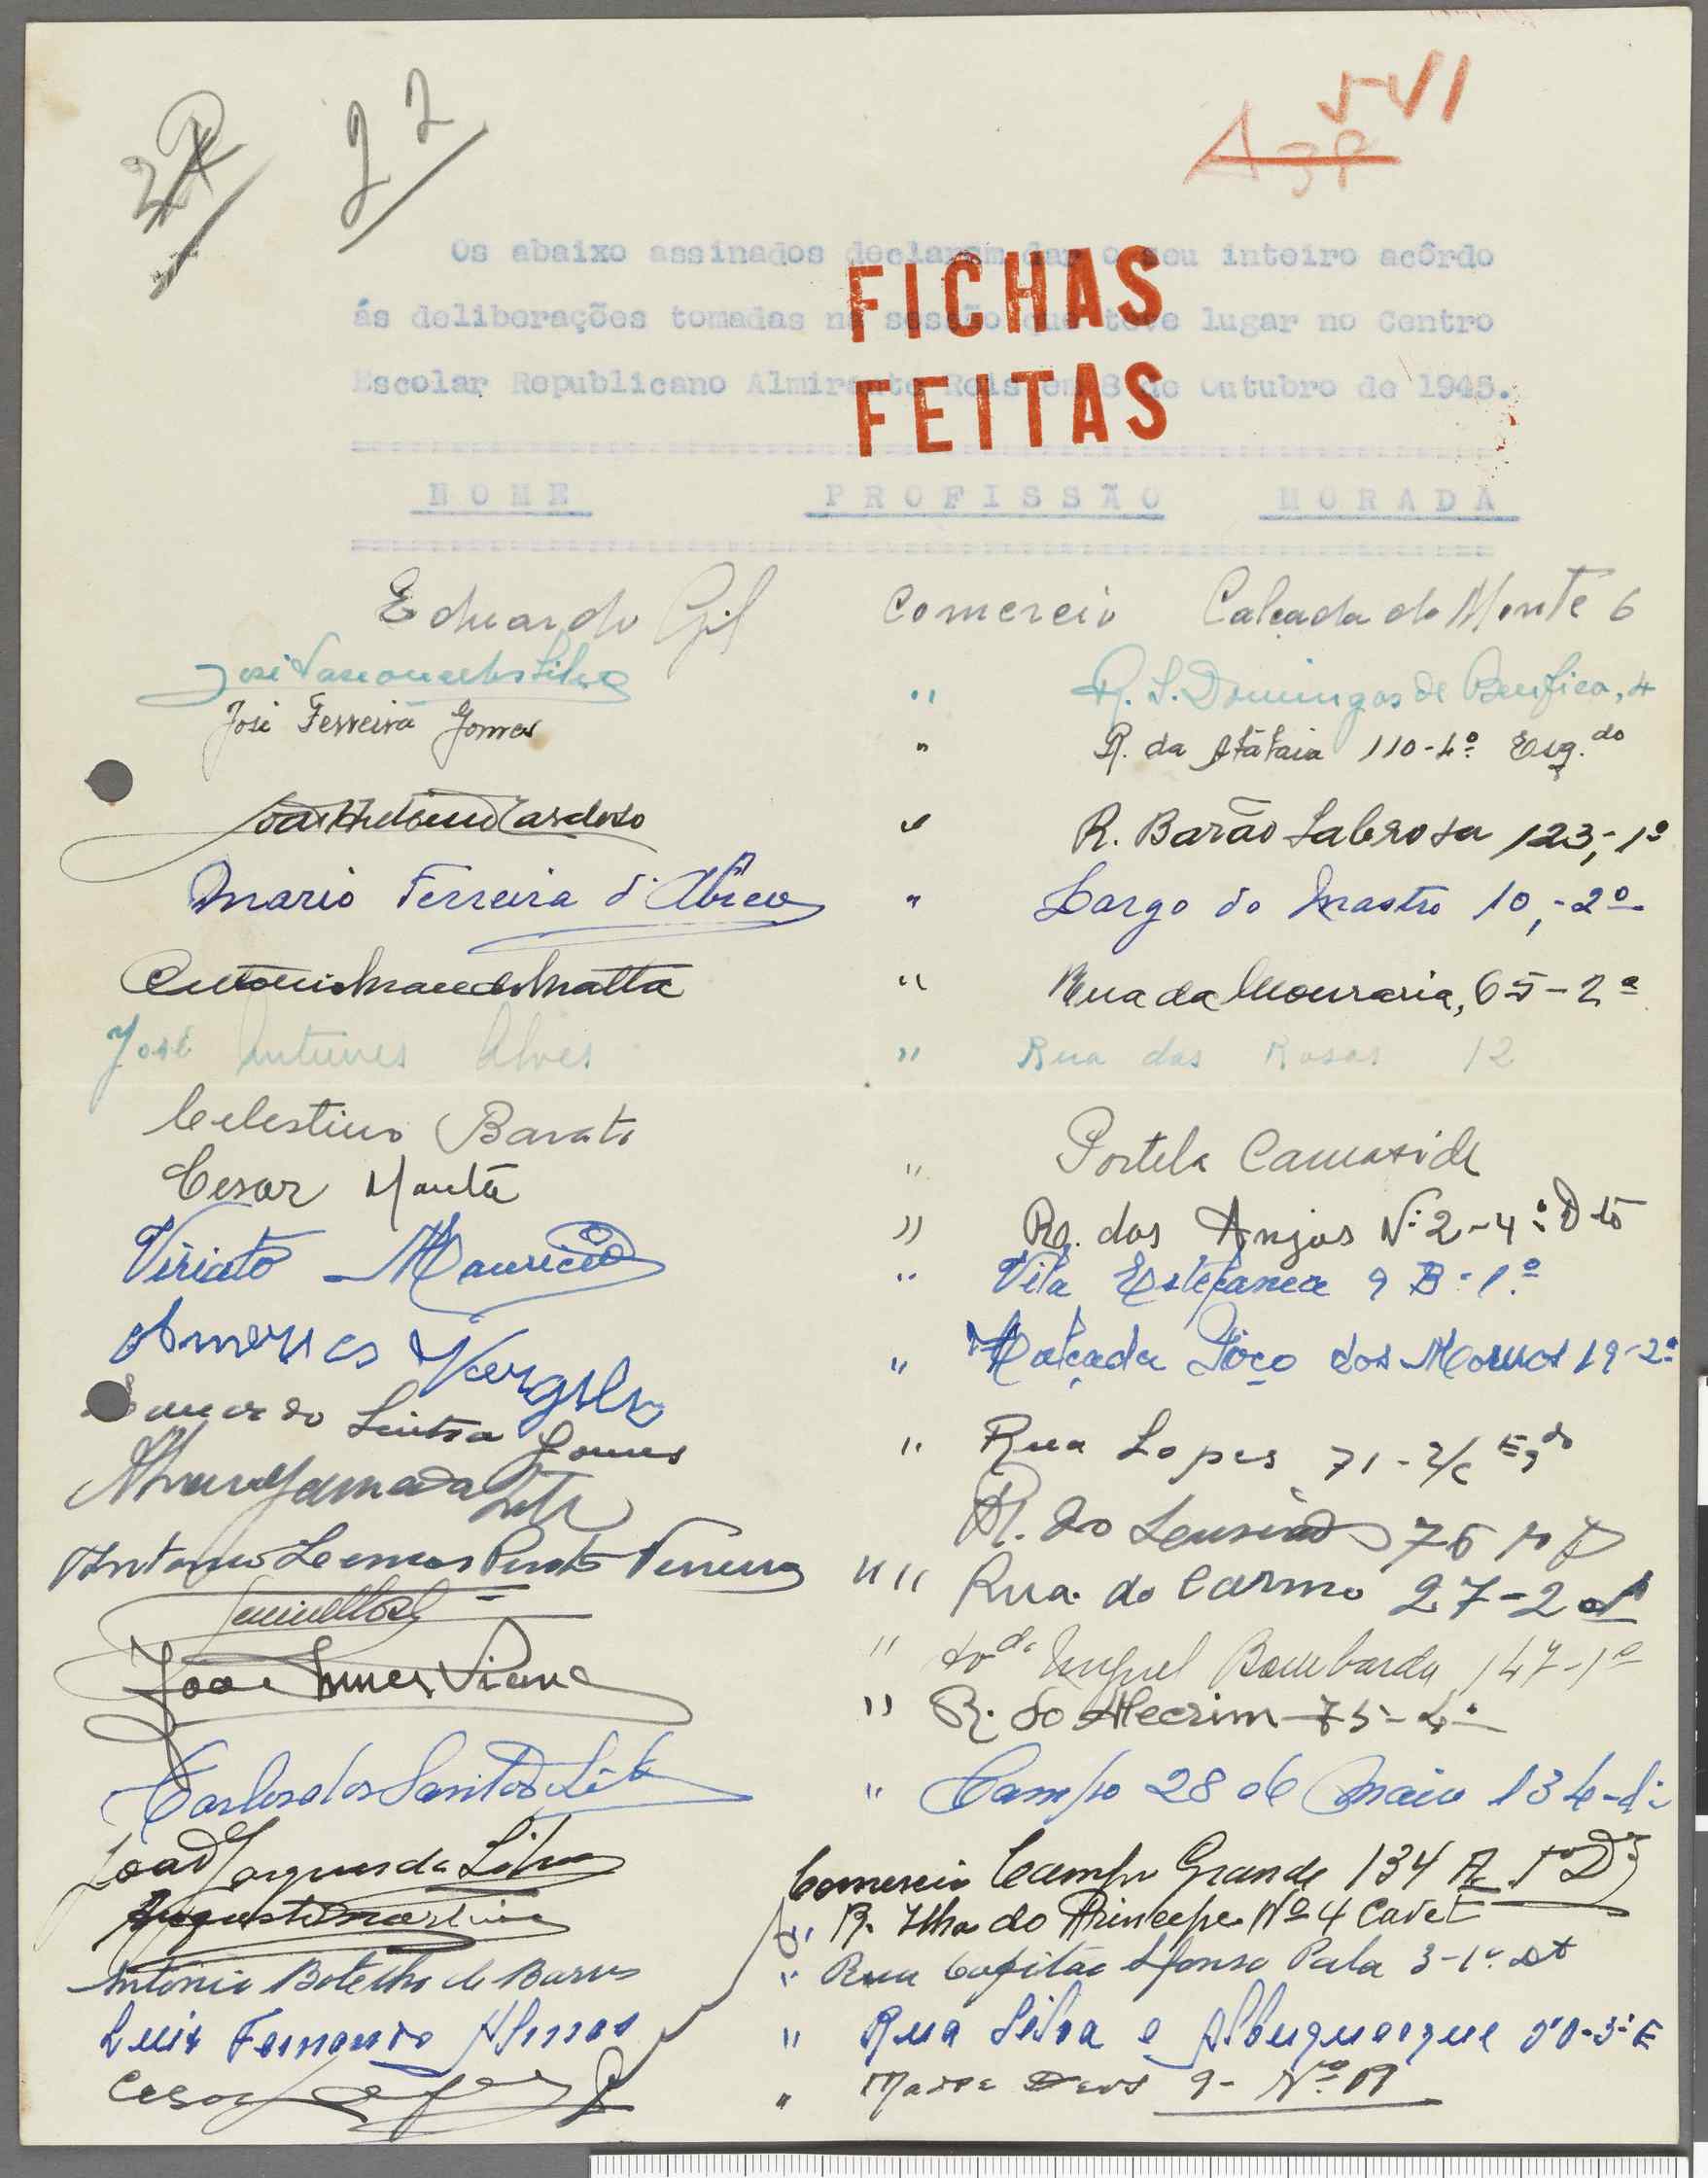 22
V-VI
A 38
Os abaixo assinados declaram dar o seu inteiro acôrdo
ás deliberações tomadas na sessão que teve lugar no Centro
Escolar Republicano Almirante Reis em 8 de Outubro de 1945.
FICHAS
FEITAS
NOME PROFISSÃO MORADA
Eduardo Gil Comercio Calçada do Monte 6
José Vasconcelos Silva " R. S. Domingos de Benfica, 4
José Ferreira Gomes " R. da Atataia 110-4º Esq.do
Cardoso " R. Barão Sabrosa 123,-1º
Mario Ferreira d'Abreu " Largo do Mastro 10,-2º
Antonio Matta " Rua da Mouraria, 65-2º
José Antunes Alves " Rua das Rosas 12
Celestino Barata " Portela Carnaxide
Cesar " R. dos Anjos Nº 2-4º Dto
Viriato Mauricio " Vila Estefanea 9 B-1º
Americo Vergilio " Calçada Pôço dos Mouros 19-2º
Sintra Gomes " Rua Lopes 71-r/c Esqdo
R. do 76
Antonio Lemos Pinto " " Rua do Carmo 27-2º
" Avda Miguel Bombarda, 147-1º
João Nunes Viana " R. do Alecrim 75-4º
Carlos dos Santos " Campo 28 de Maio 134-
João da Silva Comercio Campo Grande 134 A 1º D
Augusto Martins " R. Ilha do Principe Nº 4 Cave E
Antonio Botelho de Barros " Rua Capitão Afonso Pala 3-1º Dt
Luis Fernando " Rua Silva e Albuquerque 50-3º E
Cesar " Madre Deus 9-